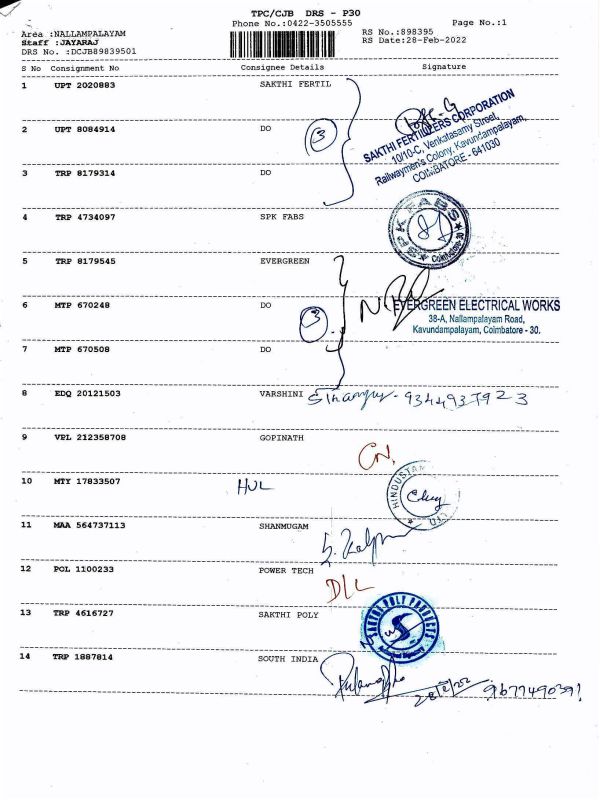 TPC/CJB DRS - P30
Phone No.:0422-3505555 Page No.:1
Area :NALLAMPALAYAM RS No.:898395
Staff :JAYARAJ RS Date:28-Feb-2022
DRS No. :DCJB89839501
S No Consignment No Consignee Details Signature
1 UPT 2020883 SAKTHI FERTIL
SAKTHI FERTILIZERS CORPORATION
10/10-C, Venkatasamy Street,
Railwaymen's Colony, Kavundampalayam,
COIMBATORE - 641030
2 UPT 8084914 DO 3
3 TRP 8179314 DO
4 TRP 4734097 SPK FABS
SPK FABS
Coimbatore
5 TRP 8179545 EVERGREEN
6 MTP 670248 DO 3
EVERGREEN ELECTRICAL WORKS
38-A, Nallampalayam Road,
Kavundampalayam, Coimbatore - 30.
7 MTP 670508 DO
8 EDQ 20121503 VARSHINI 9344937923
9 VPL 212358708 GOPINATH
CN.
10 MTY 17833507 HUL
HINDUSTAN
LTD
11 MAA 564737113 SHANMUGAM
12 POL 1100233 POWER TECH
D/L
13 TRP 4616727 SAKTHI POLY
SAKTHI POLY PRODUCTS
14 TRP 1887814 SOUTH INDIA
28/2/22 9677490391